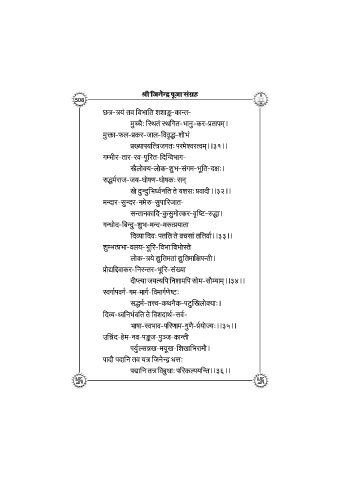 श्री जिनेन्द्र पूजा संग्रह
508
छत्र-त्रयं तव विभाति शशाङ्क-कान्त-
मुच्चैः स्थितं स्थगित-भानु-कर-प्रतापम्।
मुक्ता-फल-प्रकर-जाल-विवृद्ध-शोभं
प्रख्यापयत्त्रिजगतः परमेश्वरत्वम्।।३१।।
गम्भीर-तार-रव-पूरित-दिग्विभाग-
स्त्रैलोक्य-लोक-शुभ-संगम-भूति-दक्षः।
सद्धर्मराज-जय-घोषण-घोषकः सन्
खे दुन्दुभिर्ध्वनति ते यशसः प्रवादी।।३२।।
मन्दार-सुन्दर-नमेरु-सुपारिजात-
सन्तानकादि-कुसुमोत्कर-वृष्टि-रुद्धा।
गन्धोद-बिन्दु-शुभ-मन्द-मरुत्प्रपाता
दिव्या दिवः पतति ते वचसां ततिर्वा।।३३।।
शुम्भत्प्रभा-वलय-भूरि-विभा विभोस्ते
लोक-त्रये द्युतिमतां द्युतिमाक्षिपन्ती।
प्रोद्यद्दिवाकर-निरन्तर-भूरि-संख्या
दीप्त्या जयत्यपि निशामपि सोम-सौम्याम्।।३४।।
स्वर्गापवर्ग-गम-मार्ग-विमार्गणेष्टः
सद्धर्म-तत्त्व-कथनैक-पटुस्त्रिलोक्याः।
दिव्य-ध्वनिर्भवति ते विशदार्थ-सर्व-
भाषा-स्वभाव-परिणाम-गुणैः-र्प्रयोज्यः।।३५।।
उन्निद्र-हेम-नव-पङ्कज-पुञ्ज-कान्ती
पर्युल्लसन्नख-मयूख-शिखाभिरामौ।
पादौ पदानि तव यत्र जिनेन्द्र धत्तः
पद्मानि तत्र विबुधाः परिकल्पयन्ति।।३६।।